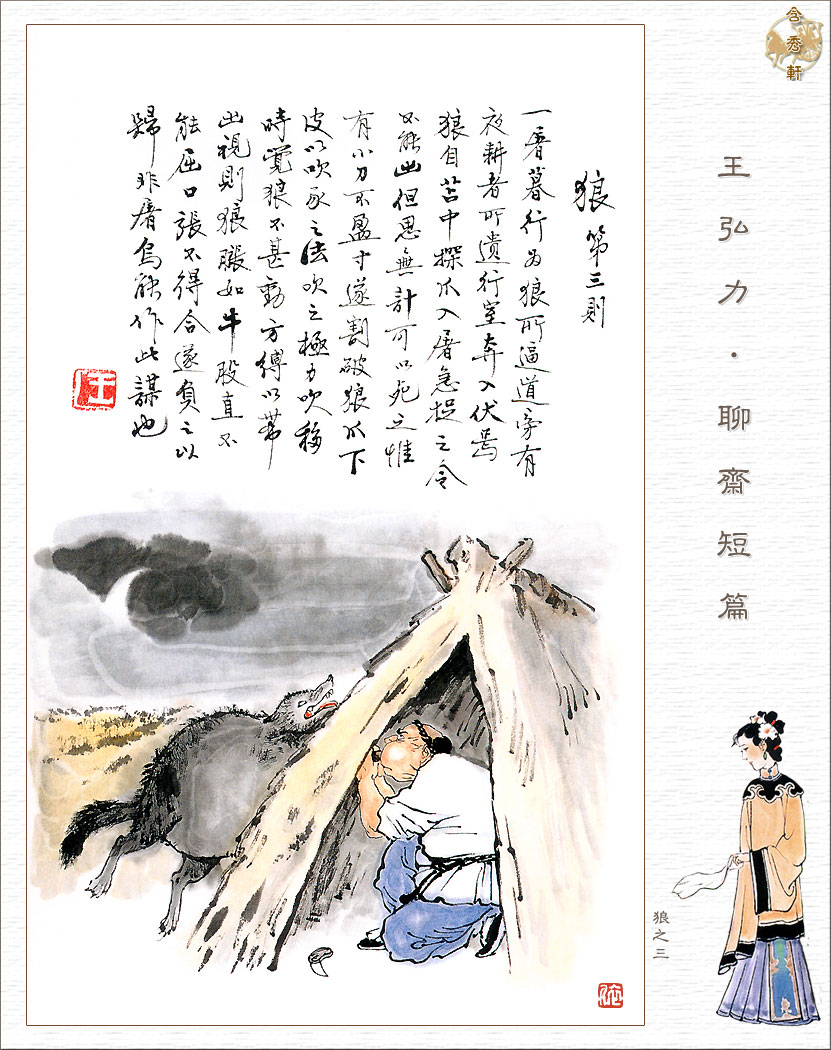 含秀軒
王弘力·聊齋短篇
狼 第三則
一屠暮行为狼所逼道旁有
夜耕者所遺行室奔入伏焉
狼自苫中探爪入屠急捉之令
不能出但思無計可以死之惟
有小刀不盈寸遂割破狼爪下
皮以吹豕之法吹之極力吹移
時覺狼不甚動方縛以帶
出視則狼脹如牛股直不
能屈口張不得合遂負之以
歸非屠烏能作此謀也
王
狼之三